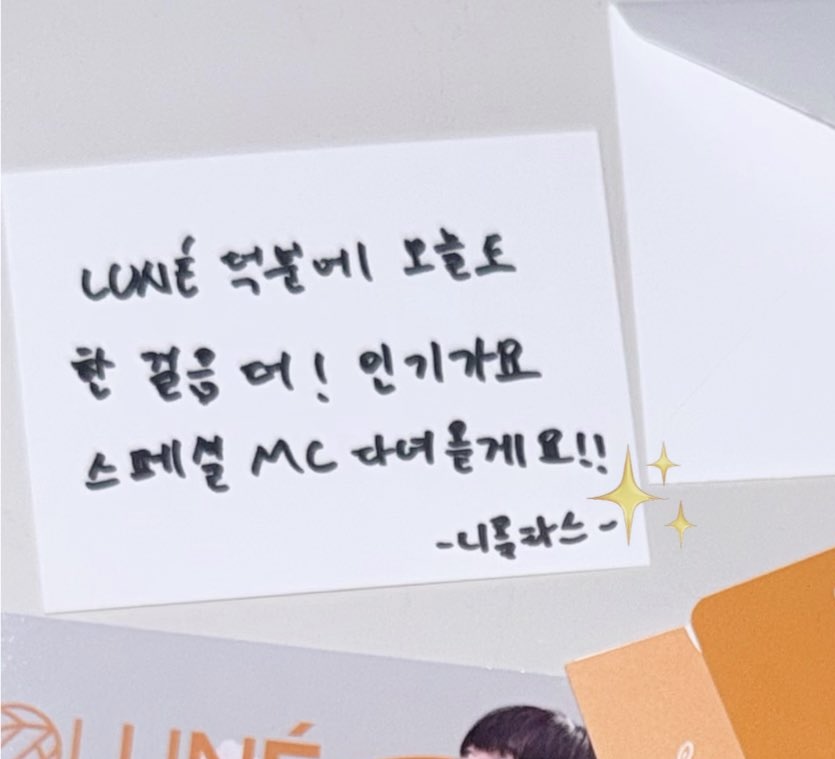 LUNÉ 덕분에 오늘도
한 걸음 더! 인기가요
스페셜 MC 다녀올게요!!
-니콜라스-
LUNÉ